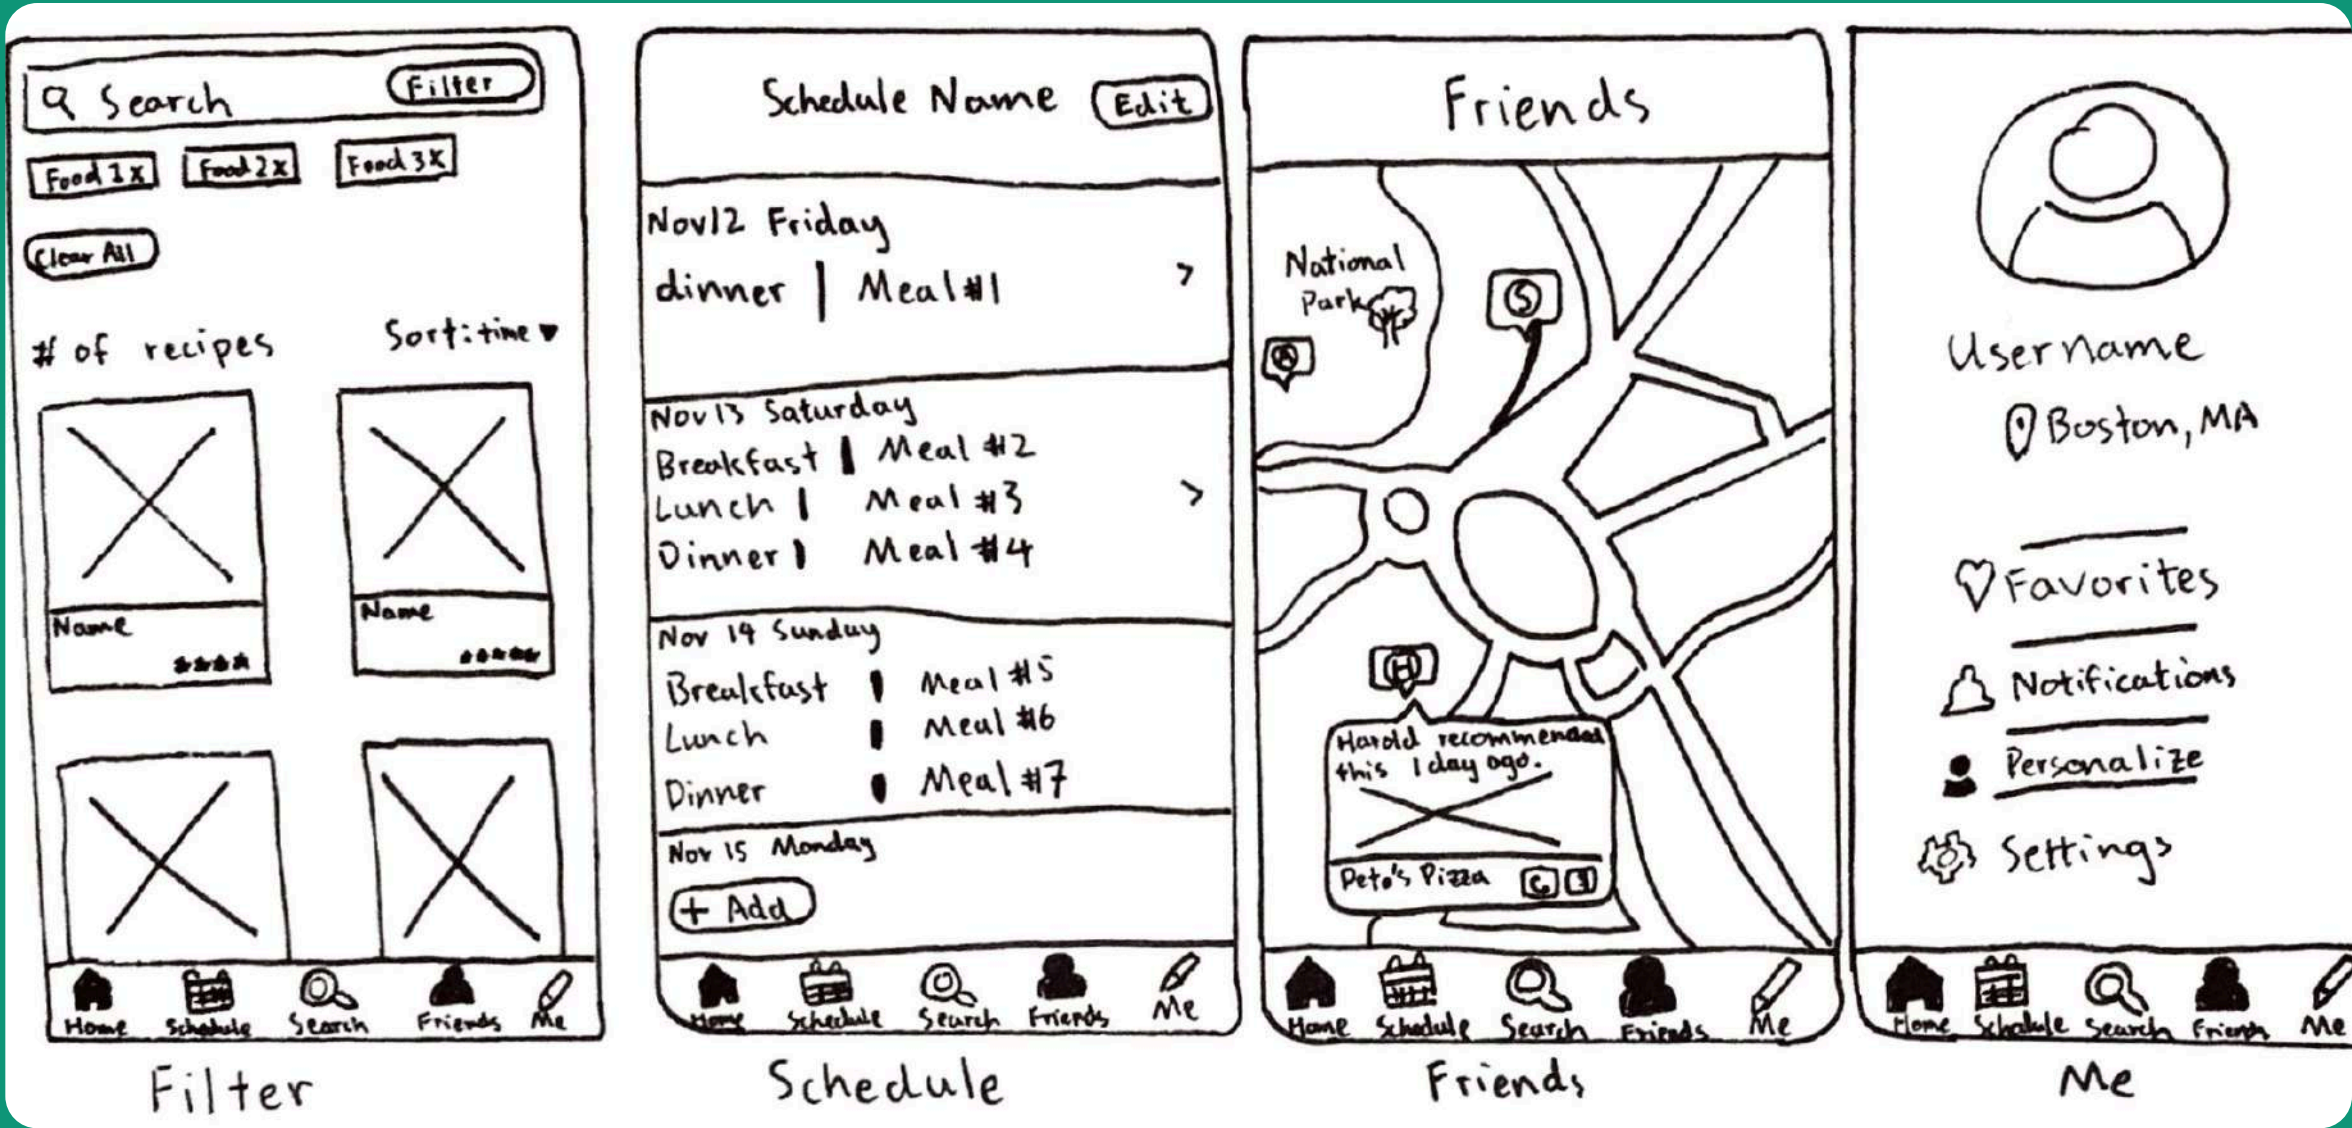 Search
Filter
Food 1 x
Food 2 x
Food 3 x
Clear All
# of recipes
Sort: time
Name
Name
Home
Schedule
Search
Friends
Me
Filter
Schedule Name
Edit
Nov 12 Friday
dinner | Meal #1 >
Nov 13 Saturday
Breakfast | Meal #2
Lunch | Meal #3 >
Dinner | Meal #4
Nov 14 Sunday
Breakfast | Meal #5
Lunch | Meal #6
Dinner | Meal #7
Nov 15 Monday
+ Add
Home
Schedule
Search
Friends
Me
Schedule
Friends
National
Park
A
S
H
Harold recommended
this 1 day ago.
Pete's Pizza
Home
Schedule
Search
Friends
Me
Friends
Username
Boston, MA
Favorites
Notifications
Personalize
Settings
Home
Schedule
Search
Friends
Me
Me